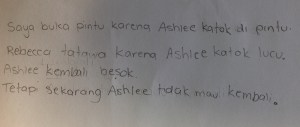 Saya buka pintu karena Ashlee katok di pintu.
Rebecca tatawa karena Ashlee katok lucu.
Ashlee kembali besok.
Tetapi sekarang Ashlee tidak mau kembali.